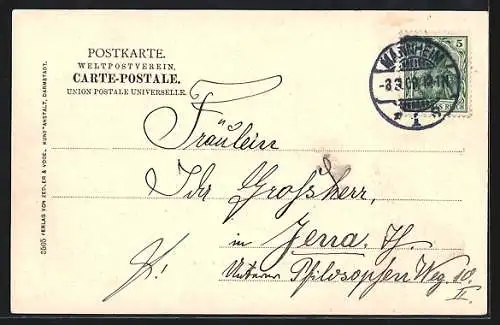 POSTKARTE.
WELTPOSTVEREIN.
CARTE-POSTALE.
UNION POSTALE UNIVERSELLE.
5
MANNHEIM
Fräulein
Ida Grossherr,
in Jena. Th.
Unterer Philosophen Weg 10.
II.
5505 VERLAG VON ZEDLER & VOGEL, KUNSTANSTALT, DARMSTADT.